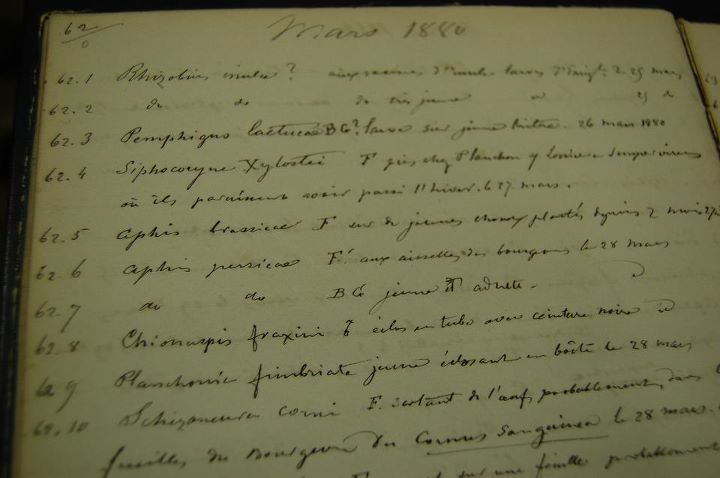 62/0
Mars 1880
62.1 Rhizobius inulae? aux racines d'Inula larves 25 mars
62.2 do do do très jeune 25 d
62.3 Pemphigus lactucae BCo? larve sur jeune laitue. 26 mars 1880
62.4 Siphocoryne Xylostei F chez Planchon Lonicera sempervirens
où ils paraissent avoir passé l'hiver. le 27 mars.
62.5 Aphis brassicae F sur de jeunes choux plantés depuis 2 mois
62.6 Aphis persicae F. aux aisselles des bourgeons le 28 mars
62.7 do do BCo jeune et adulte.
62.8 Chionaspis fraxini éclos en tube avec ceinture noire
62.9 Planchonia fimbriata jeune éclosant en boîte le 28 mars
62.10 Schizoneura corni F. sortant de l'oeuf probablement, dans
feuilles du Bourgeon du Cornus Sanguinea le 28 mars.
sur une feuille probablement